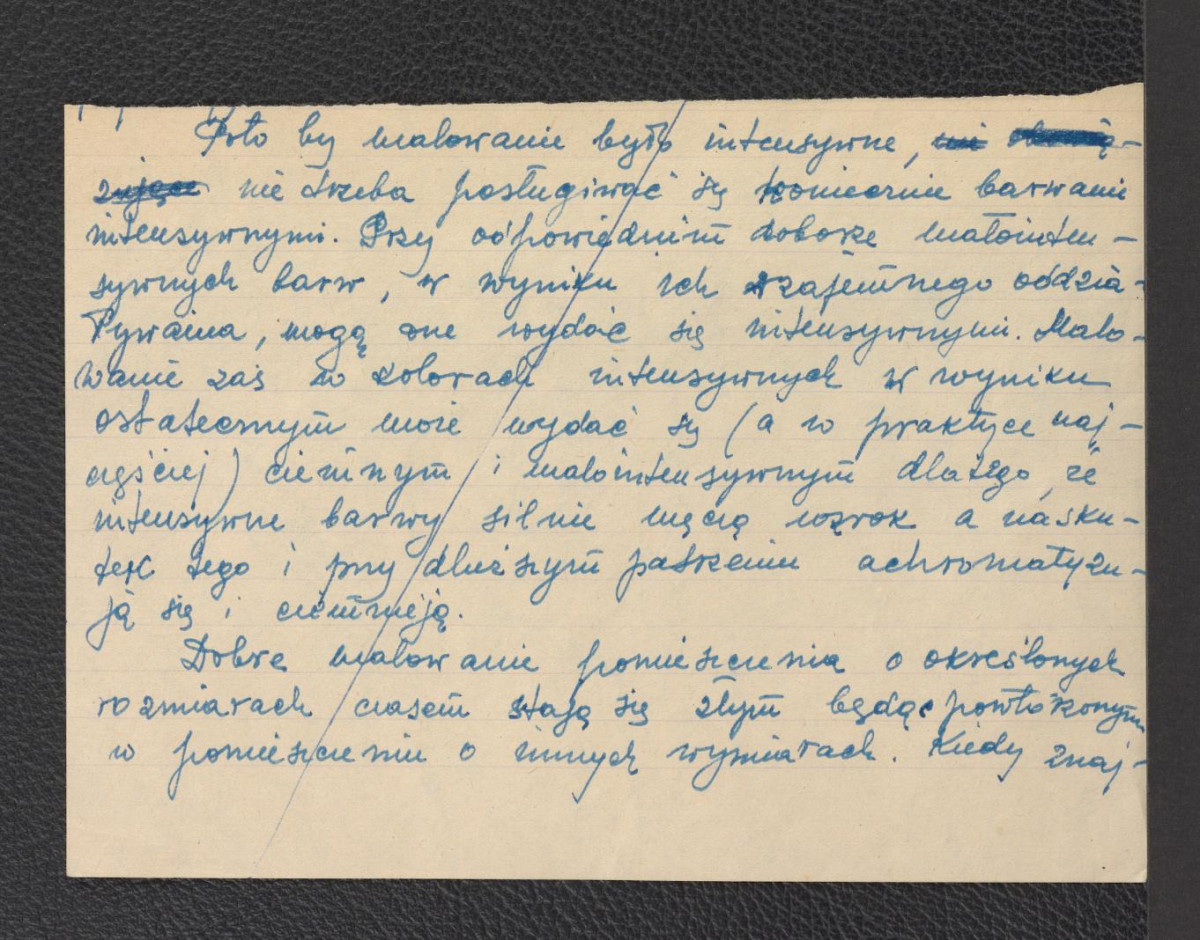 Poto by malowanie było intensywne,
nie trzeba posługiwać się koniecznie barwami
intensywnymi. Przy odpowiednim doborze małointen-
sywnych barw, w wyniku ich wzajemnego oddzia-
ływania, mogą one wydać się intensywnymi. Malo-
wanie zaś w kolorach intensywnych w wyniku
ostatecznym może wydać się (a w praktyce naj-
częściej) ciemnym i małointensywnym dlatego, że
intensywne barwy silnie męczą wzrok a nasku-
tek tego i przy dłuższym patrzeniu achromatyzu-
ją się i ciemnieją.
Dobre malowanie pomieszczenia o określonych
rozmiarach czasem stają się złym będąc powtórzonym
w pomieszczeniu o innych wymiarach. Kiedy znaj-